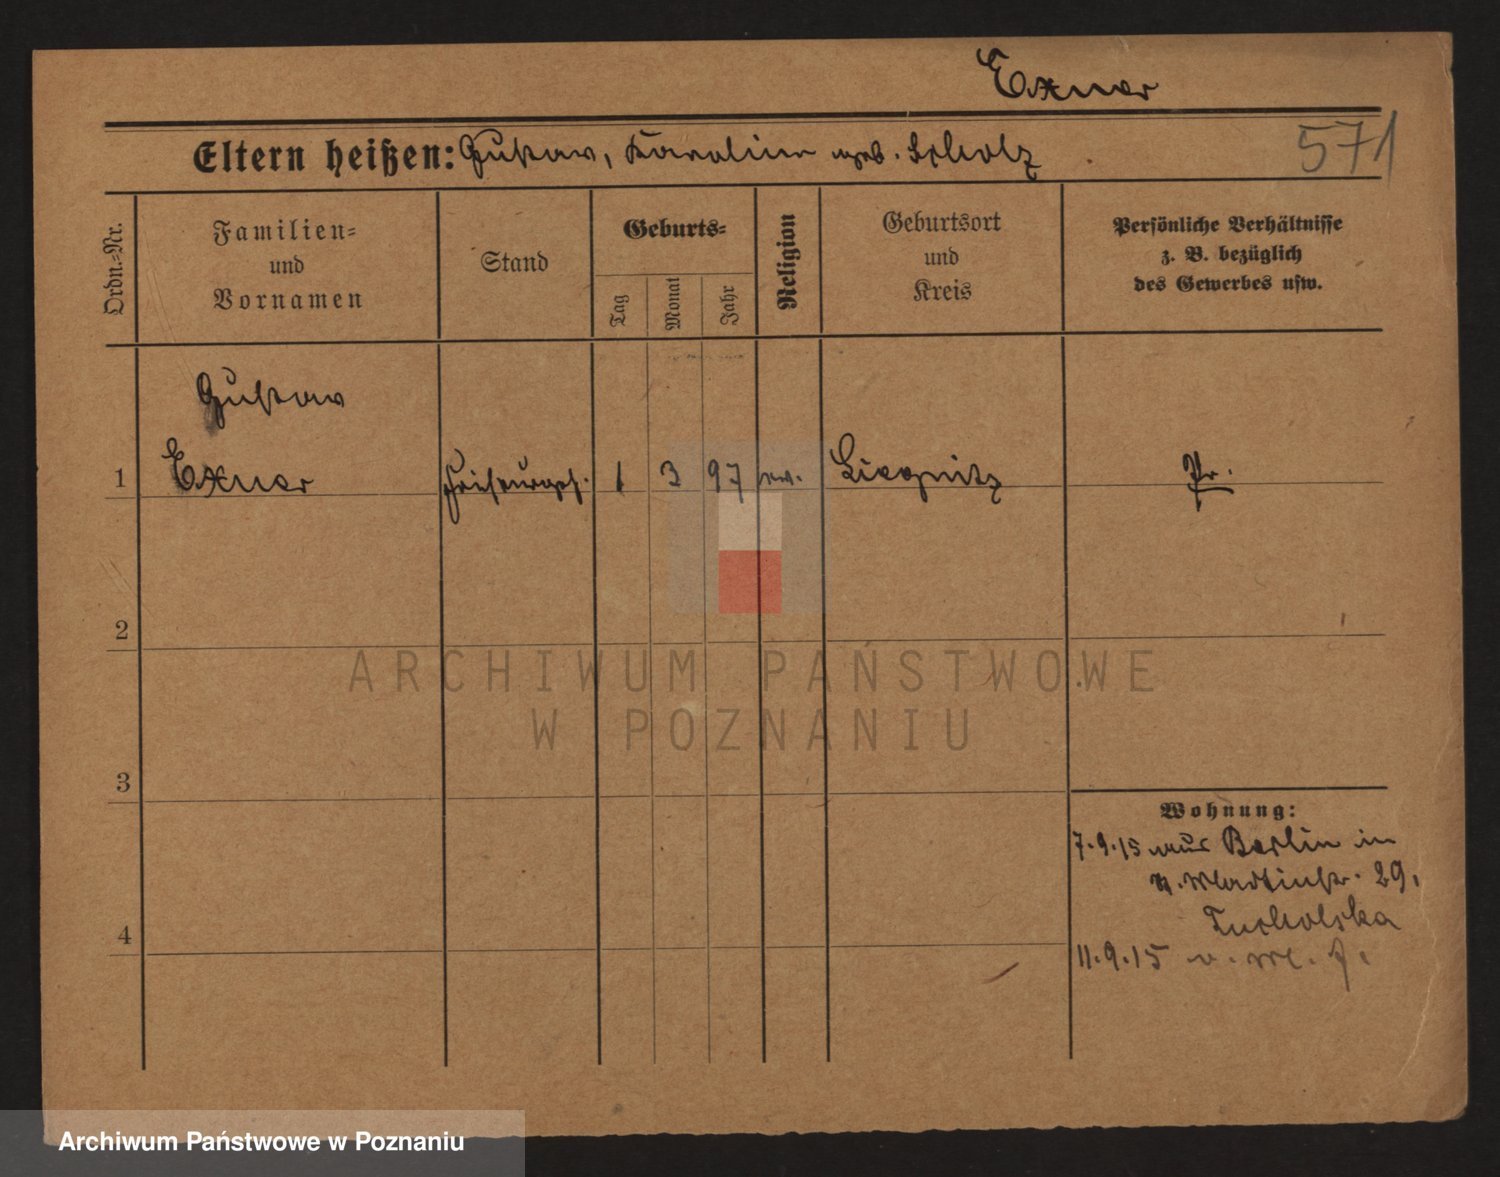 Exner
Eltern heißen: Gustav, Karoline geb. Scholz
571
Ordn.-Nr.
Familien-
und
Vornamen
Stand
Geburts-
Tag
Monat
Jahr
Religion
Geburtsort
und
Kreis
Persönliche Verhältnisse
z. B. bezüglich
des Gewerbes usw.
Gustav
1 Exner Friseurgeh. 1 3 97 ev. Liegnitz Pr.
2
ARCHIWUM PAŃSTWOWE
W POZNANIU
3
Wohnung:
7.9.15 aus Berlin in
St. Martinstr. 29.
Tucholska
4
11.9.15
Archiwum Państwowe w Poznaniu